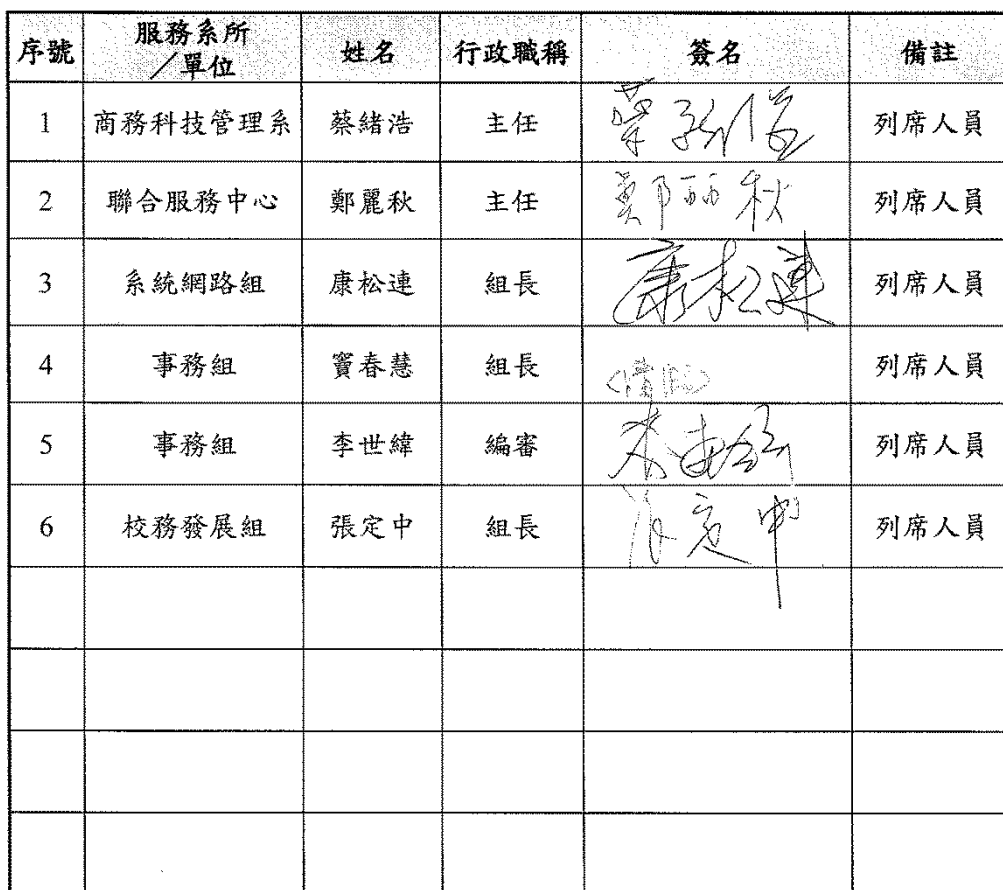 序號 服務系所／單位 姓名 行政職稱 簽名 備註
1 商務科技管理系 蔡緒浩 主任 蔡緒浩 列席人員
2 聯合服務中心 鄭麗秋 主任 鄭麗秋 列席人員
3 系統網路組 康松連 組長 康松連 列席人員
4 事務組 竇春慧 組長 列席人員
5 事務組 李世緯 編審 列席人員
6 校務發展組 張定中 組長 張定中 列席人員